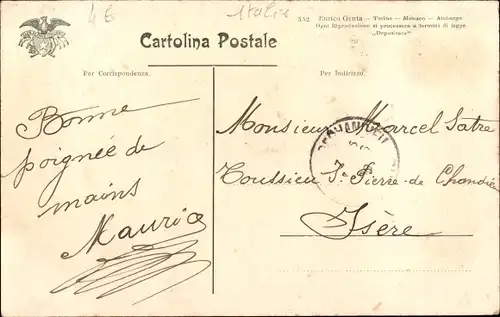 4€
Italie
552 Enrico Genta — Torino — Monaco — Amburgo
Ogni Riproduzione si processerà a termini di legge
„Depositato“
Cartolina Postale
Per Corrispondenza.
Per Indirizzo.
Bonne
poignée de
mains
Maurice
Monsieur Marcel Satre
Toussieu St Pierre-de Chandieu
Isère